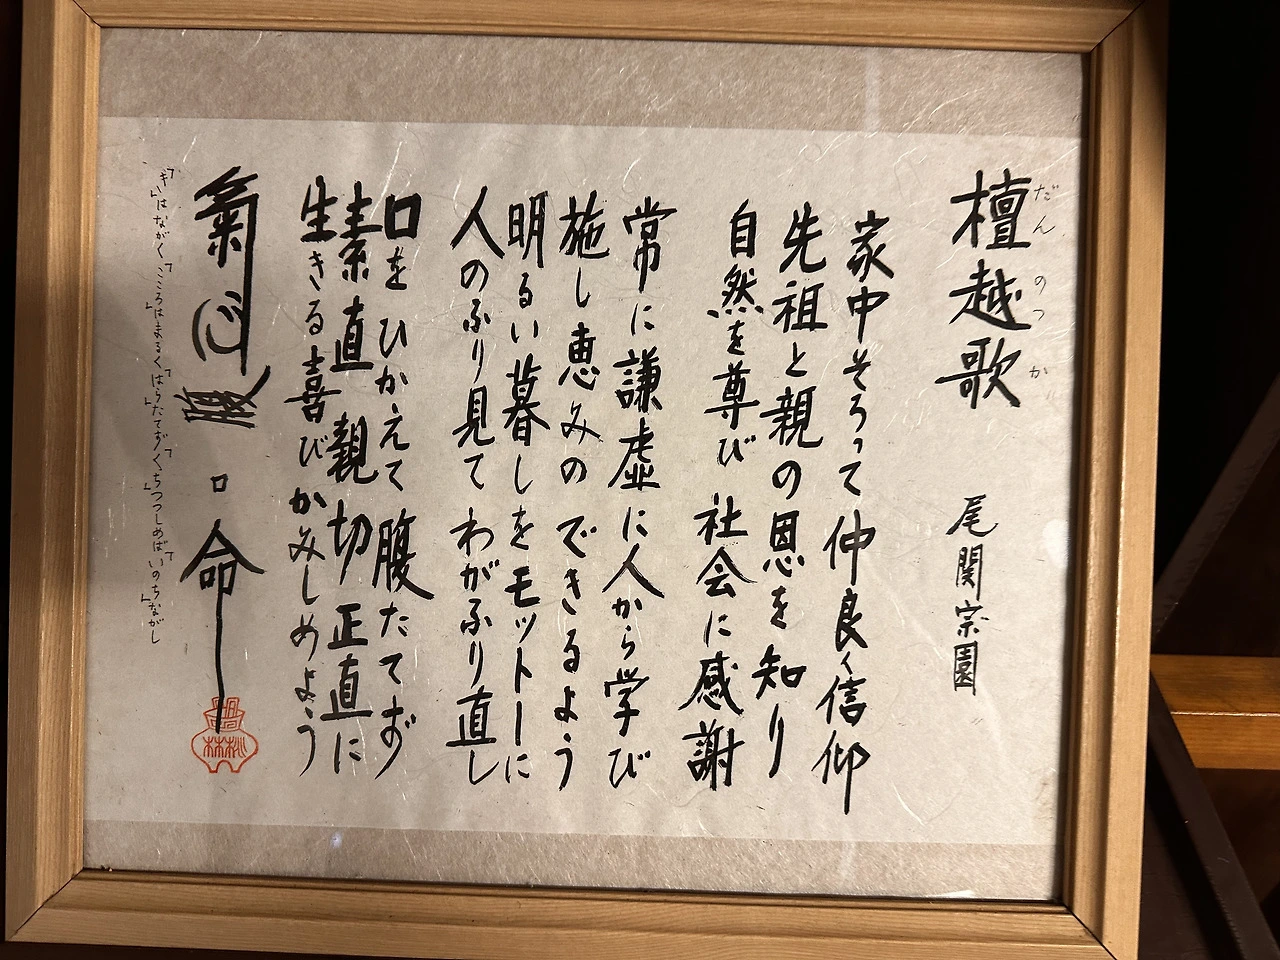 檀越歌
だんのつか
尾関宗園
家中そろって仲良く信仰
先祖と親の恩を知り
自然を尊び社会に感謝
常に謙虚に人から学び
施し恵みのできるよう
明るい暮しをモットーに
人のふり見てわがふり直し
口をひかえて腹たてず
素直親切正直に
生きる喜びかみしめよう
氣心腹口命
「き」はながく「こころ」はまるく「はら」たてず「くち」つつしめば「いのち」ながし